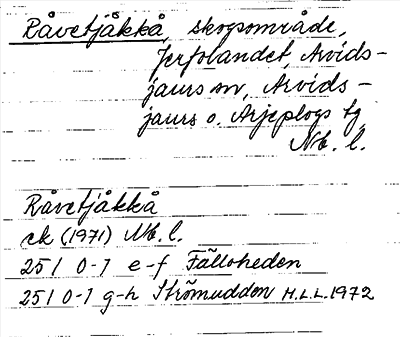 Råvetjåkkå, skogsområde,
Jerfolandet, Arvids-
jaurs sn, Arvids-
jaurs o. Arjeplogs tg,
Nb. l.
Råvetjåkkå
ek (1971) Nb. l.
25 I 0-1 e-f Fälloheden
25 I 0-1 g-h Strömudden H.L.L. 1972